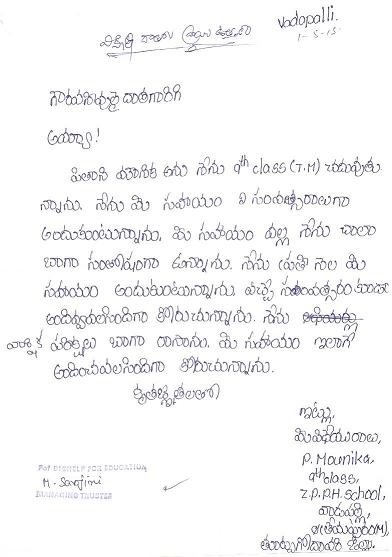 Vadapalli.
1-5-15.
గౌరవనీయులైన దాతగారికి
అయ్యా!
పితాని మౌనిక అను నేను 9th class (T.M) చదువుతు
న్నాను. నేను మీ సహాయం ని సంవత్సరాలుగా
అందుకుంటున్నాను. మీ సహాయం వల్ల నేను చాలా
బాగా సంతోషంగా ఉన్నాను. నేను ప్రతి నెల మీ
సహాయం అందుకుంటున్నాను. వచ్చే సంవత్సరం కూడా
అందివ్వవలసిందిగా కోరుచున్నాను. నేను
వార్షిక పరీక్షలు బాగా రాసాను. మీ సహాయం ఇలాగే
అందించవలసిందిగా కోరుచున్నాను.
కృతజ్ఞతలతో
ఇట్లు,
మీ విధేయురాలు,
P. Mounika,
9th class,
Z.P.P.H. School,
వాడపల్లి,
(ఆత్రేయపురం(M),
తూర్పుగోదావరి జిల్లా.
For BIGHELP FOR EDUCATION
M. Sarojini
MANAGING TRUSTEE